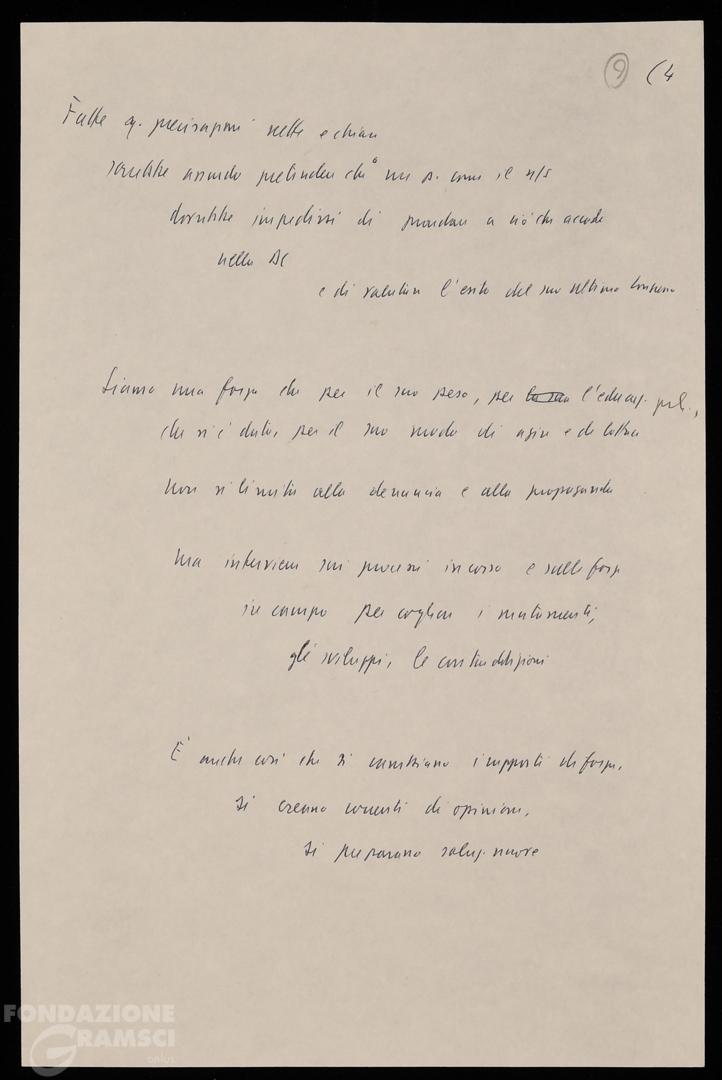 9 (4
Fatte q. precisazioni nette e chiare
sarebbe assurdo pretendere che un p. come il n/s
dovrebbe impedirsi di guardare a ciò che accade
nella DC
e di valutare l'esito del suo ultimo Congresso
Siamo una forza che per il suo peso, per la sua l'educaz. pol.,
che si è data, per il suo modo di agire e di lottare
non si limita alla denuncia e alla propaganda
ma interviene sui processi in corso e sulle forze
in campo per cogliere i mutamenti,
gli sviluppi, le contraddizioni
È anche così che si cambiano i rapporti di forza,
si creano correnti di opinione,
si preparano soluz. nuove
FONDAZIONE
GRAMSCI
onlus